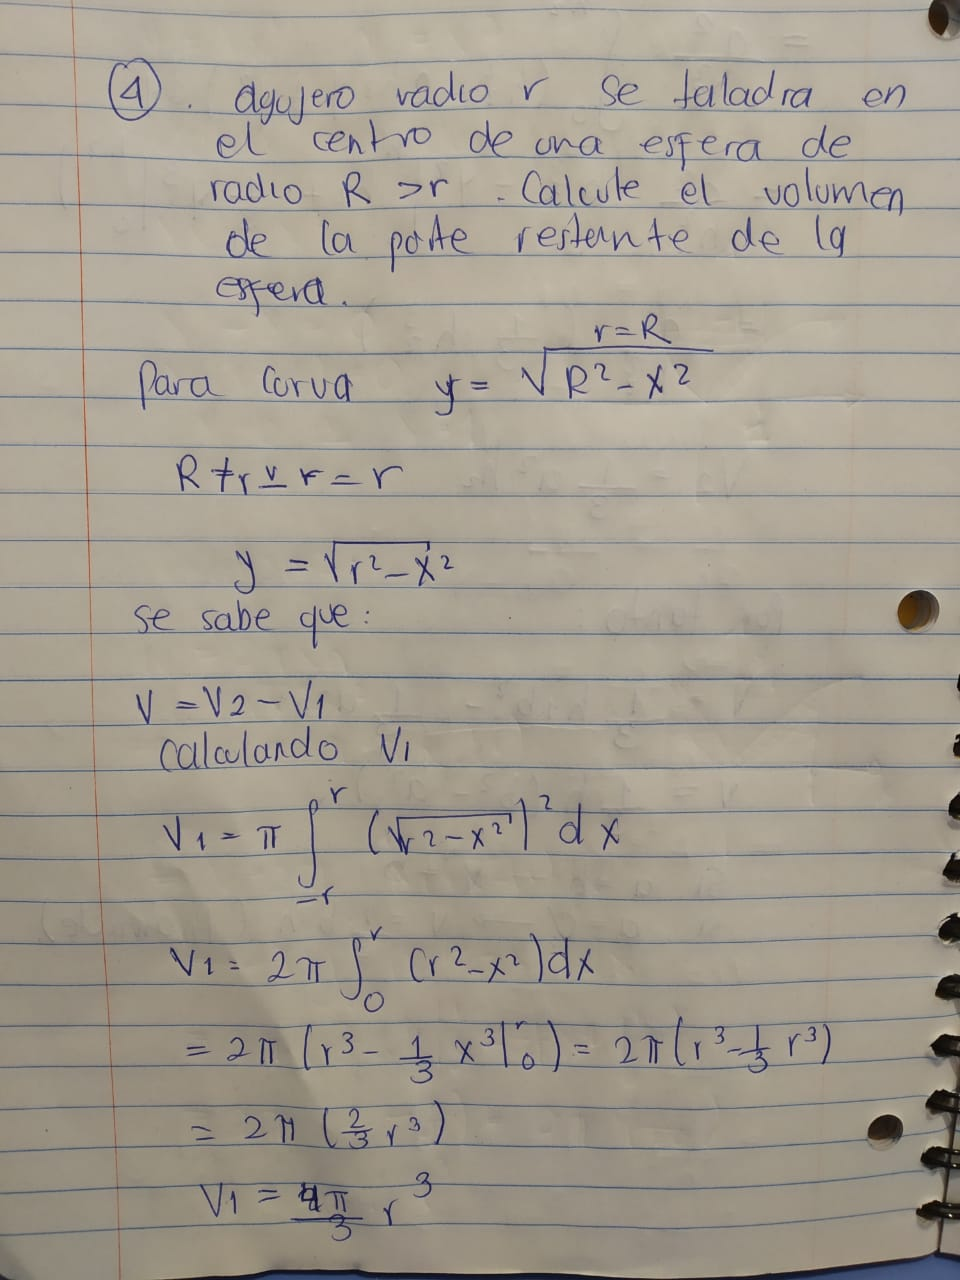 ④. agujero radio r se taladra en
el centro de una esfera de
radio R >r. Calcule el volumen
de la parte restante de la
esfera.
r=R
Para Curva y = √(R²-x²)
R ≠ r y r = r
y = √(r²-x²)
se sabe que:
V = V2 - V1
Calculando V1
V1 = π ∫_{-r}^{r} (√(r²-x²))² dx
V1 = 2π ∫_0^r (r²-x²)dx
= 2π (r³ - 1/3 x³|_0^r) = 2π(r³ - 1/3 r³)
= 2π (2/3 r³)
V1 = 4π/3 r³